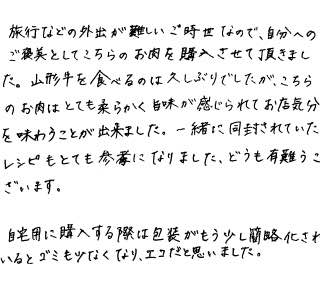 旅行などの外出が難しいご時世なので、自分への
ご褒美としてこちらのお肉を購入させて頂きまし
た。山形牛を食べるのは久しぶりでしたが、こちら
のお肉はとても柔らかく旨味が感じられてお店気分
を味わうことが出来ました。一緒に同封されていた
レシピもとても参考になりました、どうも有難うご
ざいます。
自宅用に購入する際は包装がもう少し簡略化されて
いるとゴミも少なくなり、エコだと思いました。